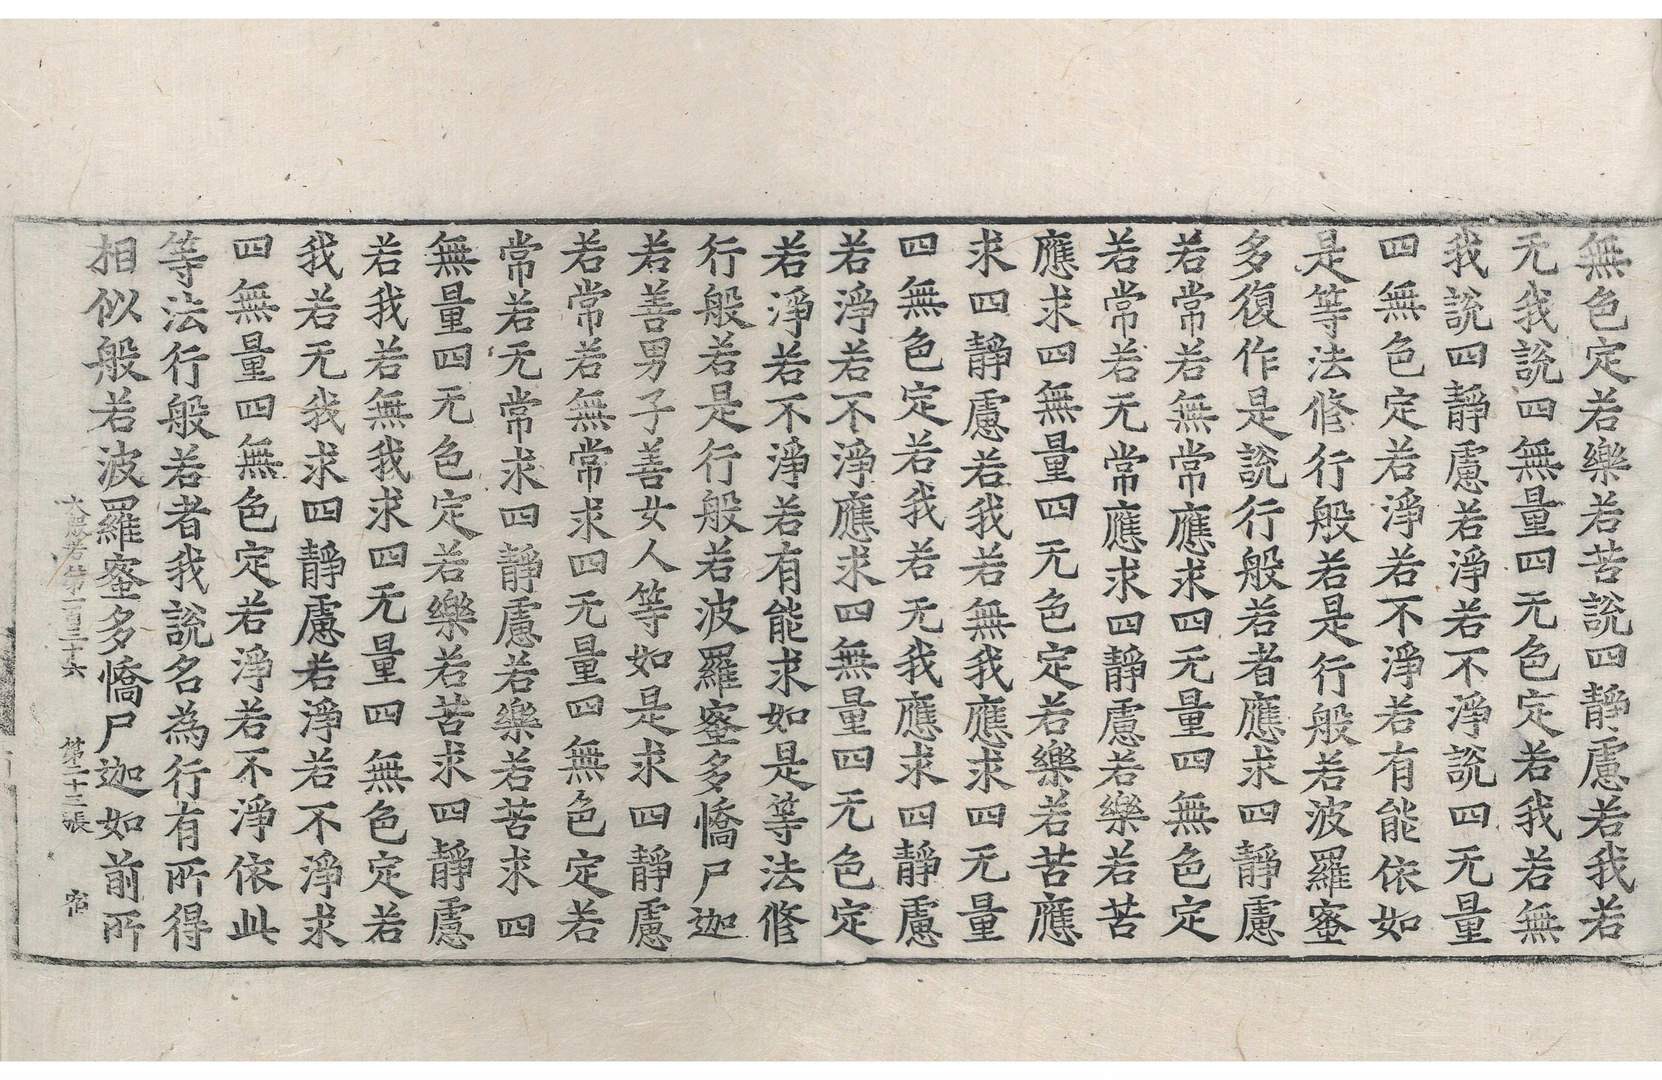 無色定若樂若苦說四靜慮若我若
无我說四無量四无色定若我若無
我說四靜慮若淨若不淨說四无量
四無色定若淨若不淨若有能依如
是等法修行般若是行般若波羅蜜
多復作是說行般若者應求四靜慮
若常若無常應求四无量四無色定
若常若无常應求四靜慮若樂若苦
應求四無量四无色定若樂若苦應
求四靜慮若我若無我應求四无量
四無色定若我若无我應求四靜慮
若淨若不淨應求四無量四无色定
若淨若不淨若有能求如是等法修
行般若是行般若波羅蜜多憍尸迦
若善男子善女人等如是求四靜慮
若常若無常求四无量四無色定若
常若无常求四靜慮若樂若苦求四
無量四无色定若樂若苦求四靜慮
若我若無我求四无量四無色定若
我若无我求四靜慮若淨若不淨求
四無量四無色定若淨若不淨依此
等法行般若者我說名為行有所得
相似般若波羅蜜多憍尸迦如前所
大般若第一百三十六 第二十三張 宿